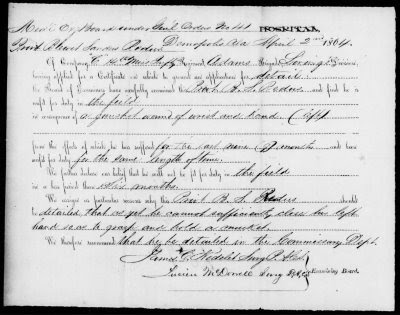 Med. Ex. Board under Genl. Orders No. 141 HOSPITAL,
Privt. Stewart Sanders Roden Demopolis Ala April 2nd 1864.
Of Company "C" 14 Miss Regiment Adams Brigade Loring's Division,
having applied for a Certificate on which to ground an application for detail
the Board of Surgeons have carefully examined Privt. S. S. Roden and find he is
unfit for duty in the field
in consequence of a gunshot wound of wrist and hand (left)
From the effects of which he has suffered for the last nine months and been
unfit for duty for the same length of time.
We further declare our belief that he will not be fit for duty in the field
in a less period than months.
We assign as particular reasons why the Privt. S. S. Roden should
be detailed that as yet he cannot sufficiently close his left
hand so as to grasp and hold a musket.
We therefore recommend that he be detailed in the Commissary Dept.
James Surg. P.A.C.S.
Lucien McDowell Surg P.A.C.S. Examining Board.